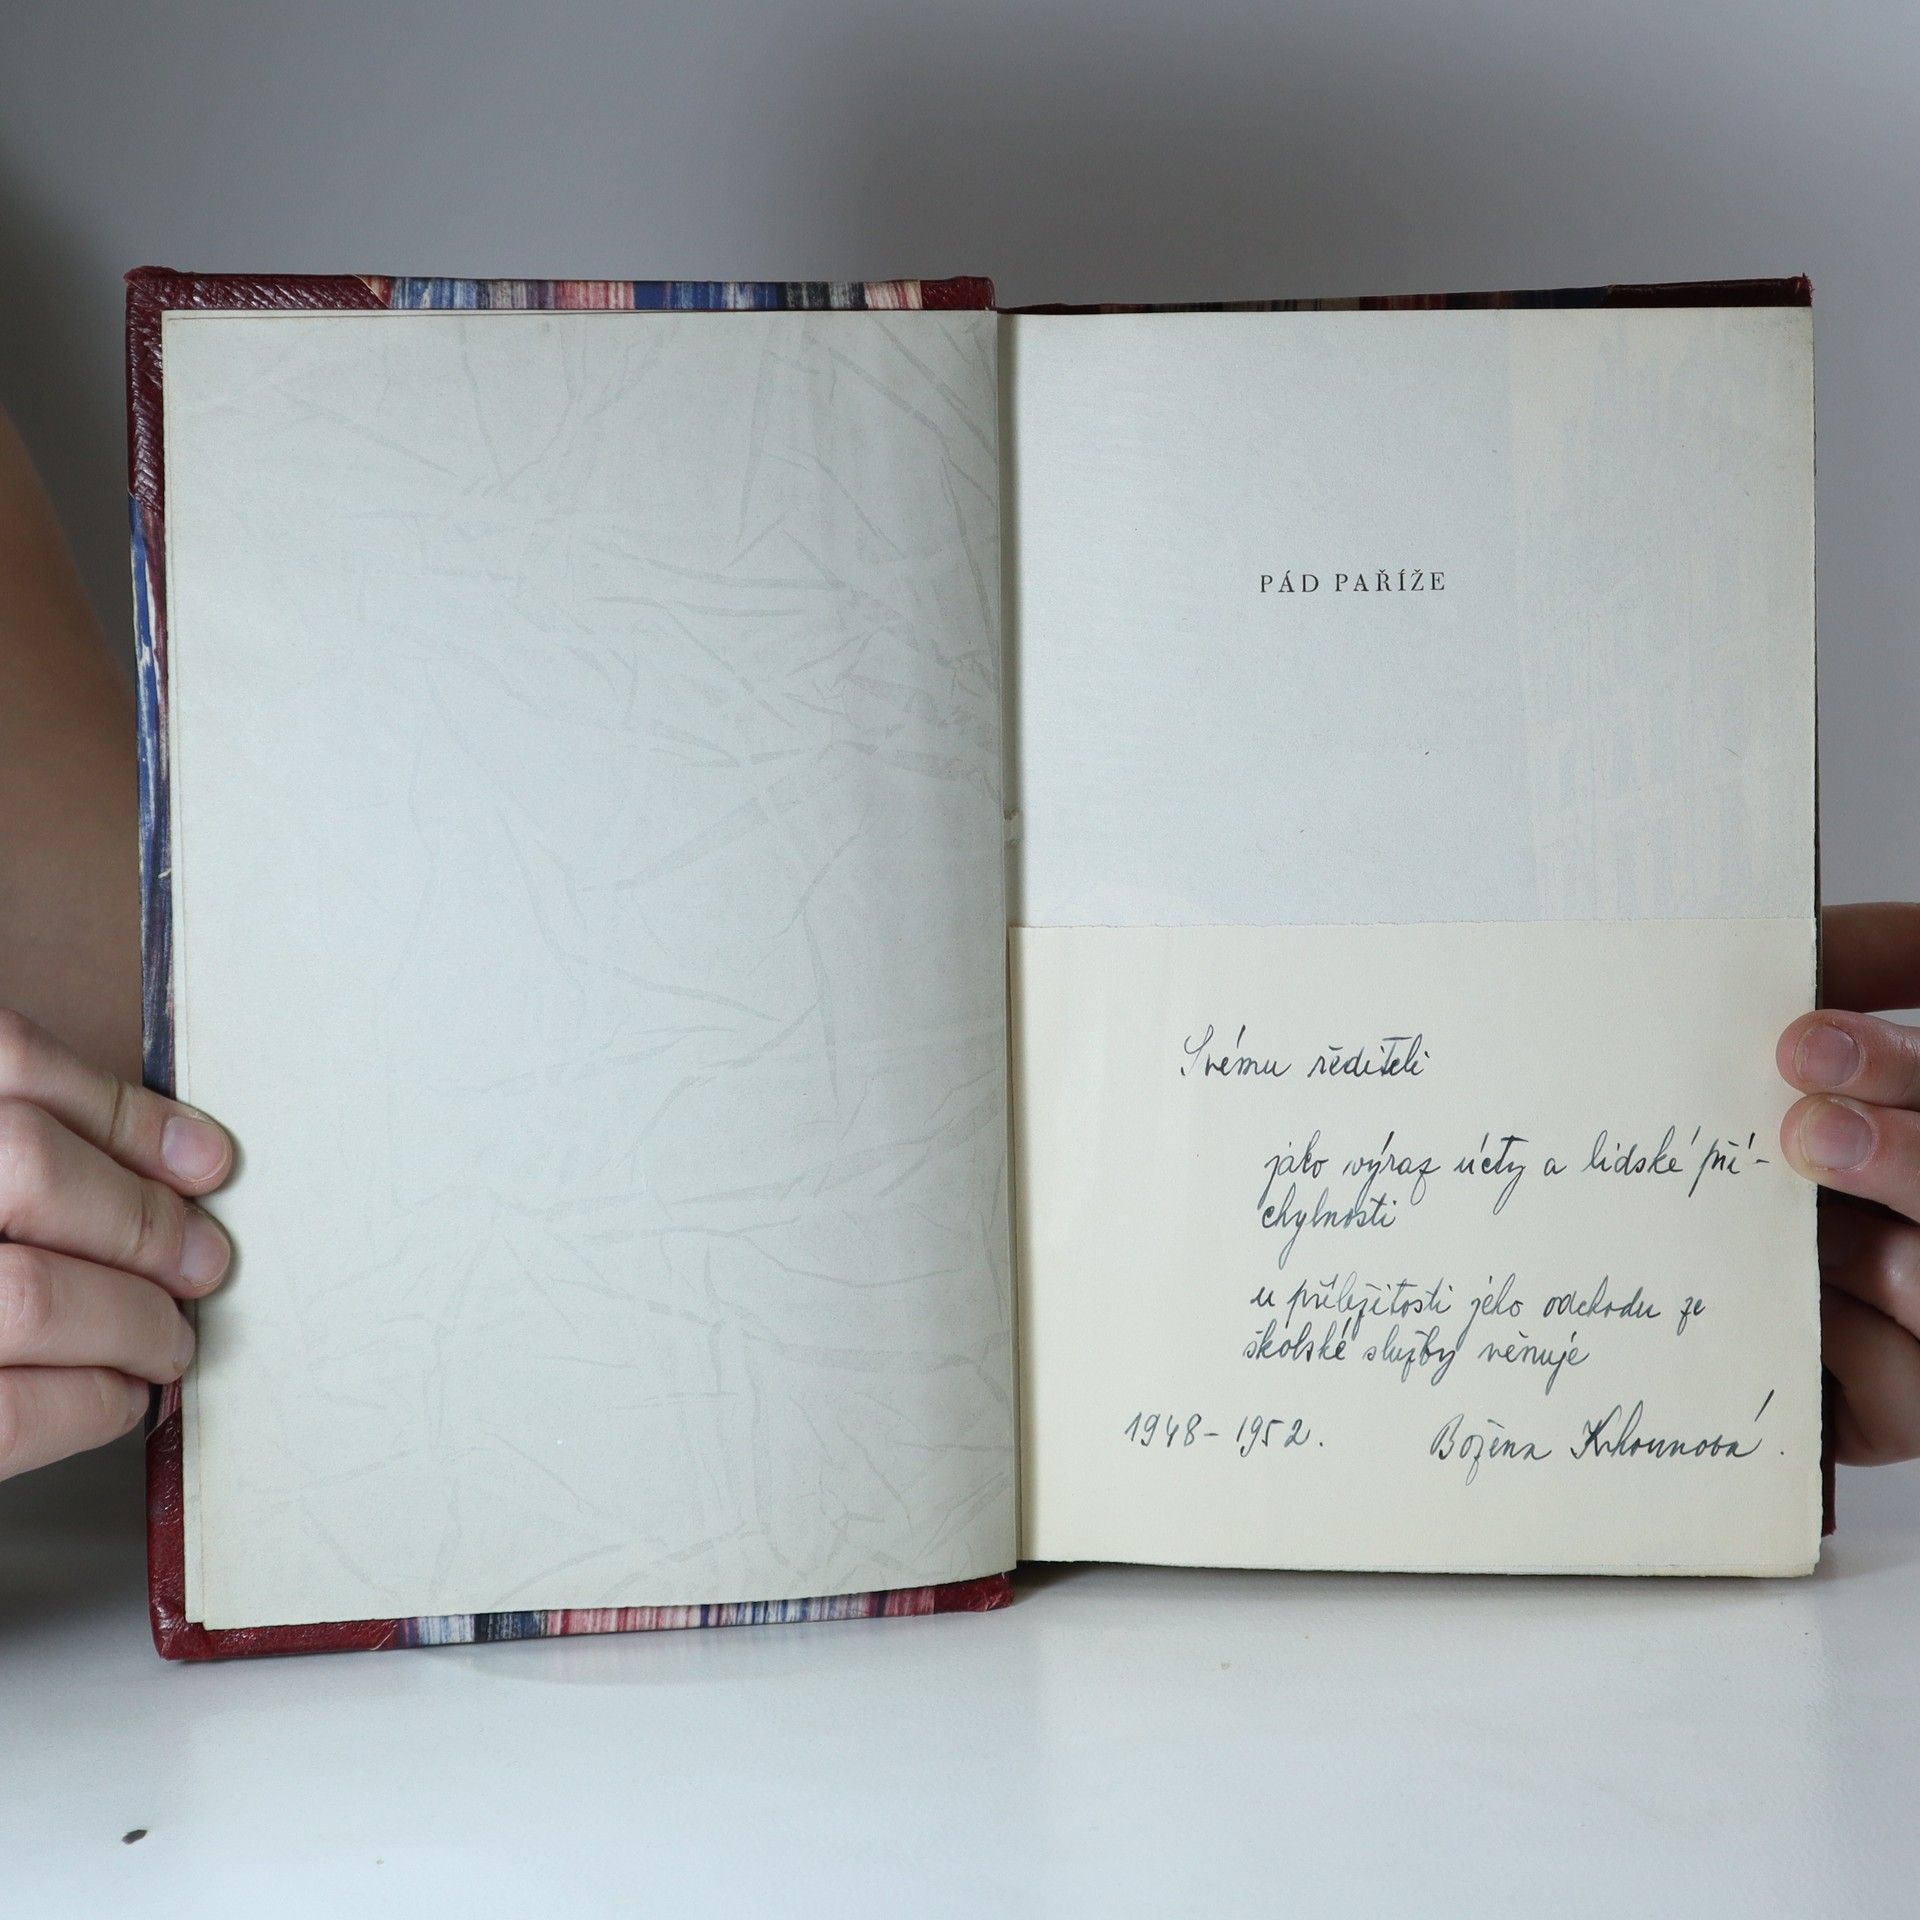 PÁD PAŘÍŽE
Svému řediteli
jako výraz úcty a lidské pří-
chylnosti
u příležitosti jeho odchodu ze
školské služby věnuje
1948 - 1952. Božena Krhounová.